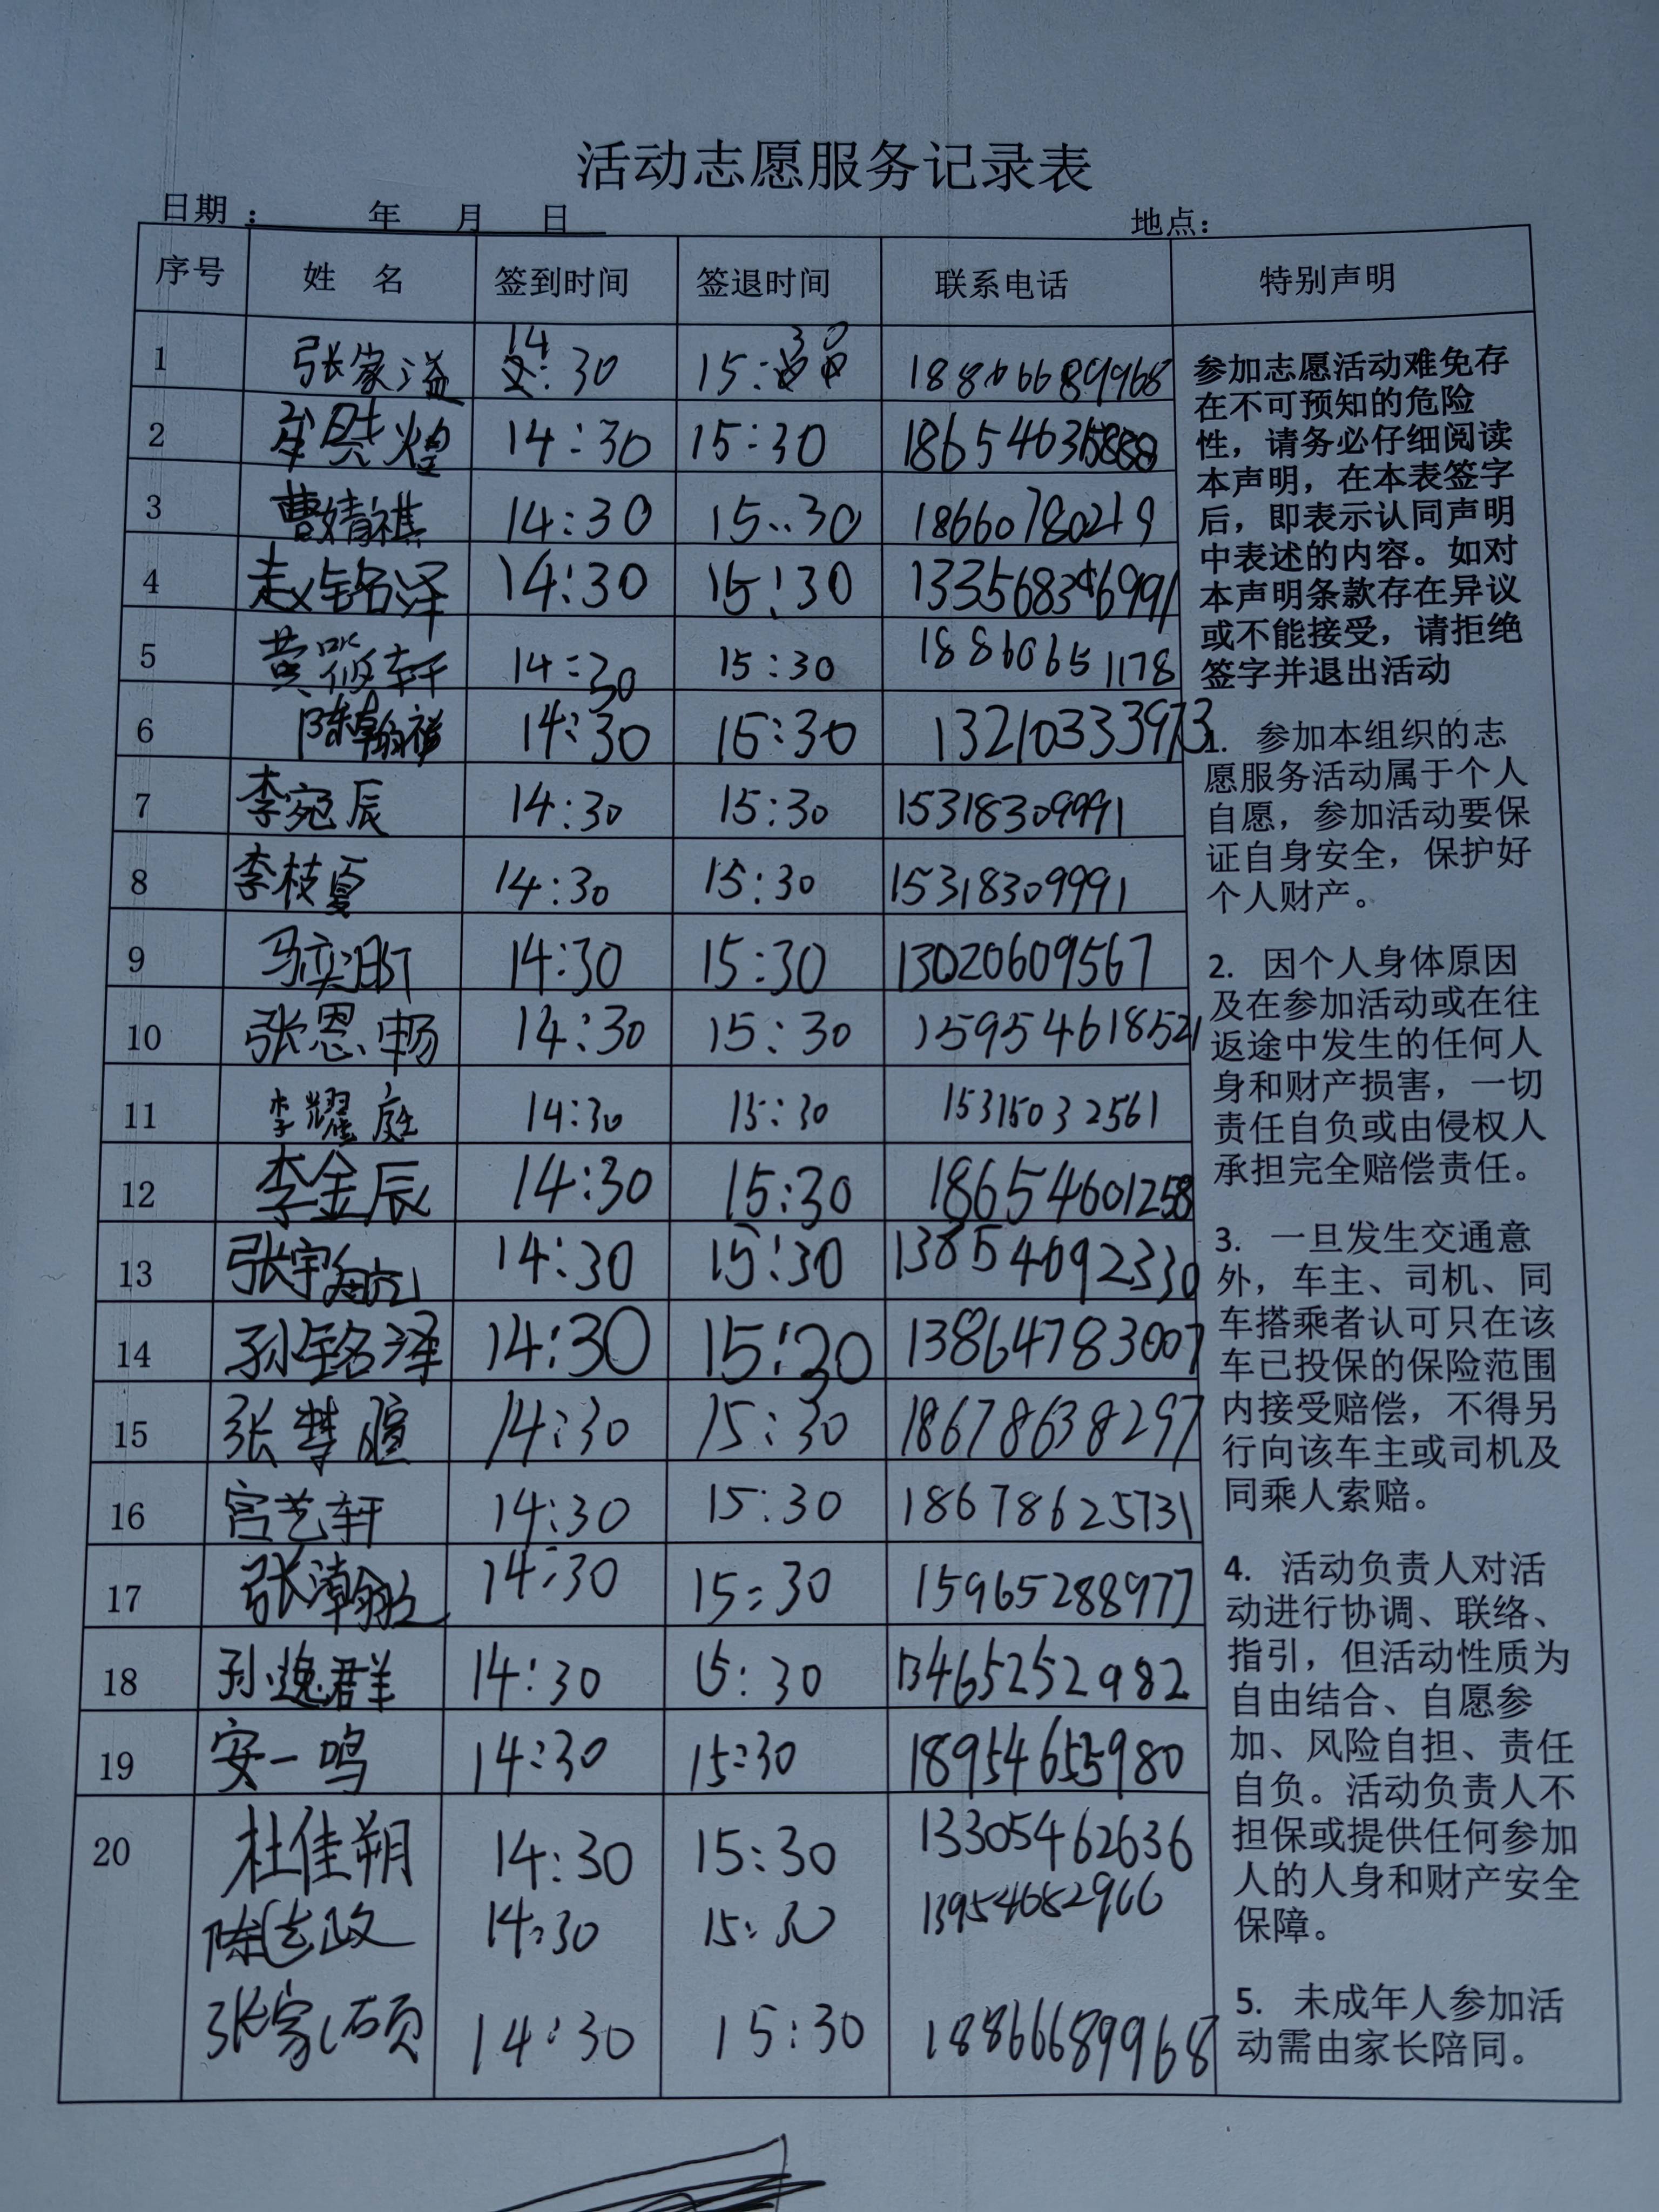 活动志愿服务记录表
日期： 年 月 日 地点：
序号 姓 名 签到时间 签退时间 联系电话 特别声明
1 张家溢 14:30 15:30 18866689968
2 14:30 15:30
3 曹婧祺 14:30 15:30 18660780219
4 赵铭泽 14:30 15:30
5 黄筱轩 14:30 15:30 18860651178
6 陈翰祥 14:30 15:30 13210333973
7 李宛辰 14:30 15:30 15318309991
8 李枝夏 14:30 15:30 15318309991
9 马奕 14:30 15:30 13020609567
10 张恩畅 14:30 15:30 15954618521
11 李耀庭 14:30 15:30 15315032561
12 李金辰 14:30 15:30 18654601258
13 张宇航 14:30 15:30 13854092330
14 孙铭泽 14:30 15:30 13864783007
15 张 14:30 15:30 18678638297
16 宫艺轩 14:30 15:30 18678625731
17 张瀚 14:30 15:30 15965288977
18 孙逸群 14:30 15:30 13465252982
19 安一鸣 14:30 15:30 18954655980
20 杜佳朔 14:30 15:30 13305462636
陈 政 14:30 15:30 13954682966
张家硕 14:30 15:30 18866689968
参加志愿活动难免存
在不可预知的危险
性，请务必仔细阅读
本声明，在本表签字
后，即表示认同声明
中表述的内容。如对
本声明条款存在异议
或不能接受，请拒绝
签字并退出活动
1. 参加本组织的志
愿服务活动属于个人
自愿，参加活动要保
证自身安全，保护好
个人财产。
2. 因个人身体原因
及在参加活动或在往
返途中发生的任何人
身和财产损害，一切
责任自负或由侵权人
承担完全赔偿责任。
3. 一旦发生交通意
外，车主、司机、同
车搭乘者认可只在该
车已投保的保险范围
内接受赔偿，不得另
行向该车主或司机及
同乘人索赔。
4. 活动负责人对活
动进行协调、联络、
指引，但活动性质为
自由结合、自愿参
加、风险自担、责任
自负。活动负责人不
担保或提供任何参加
人的人身和财产安全
保障。
5. 未成年人参加活
动需由家长陪同。